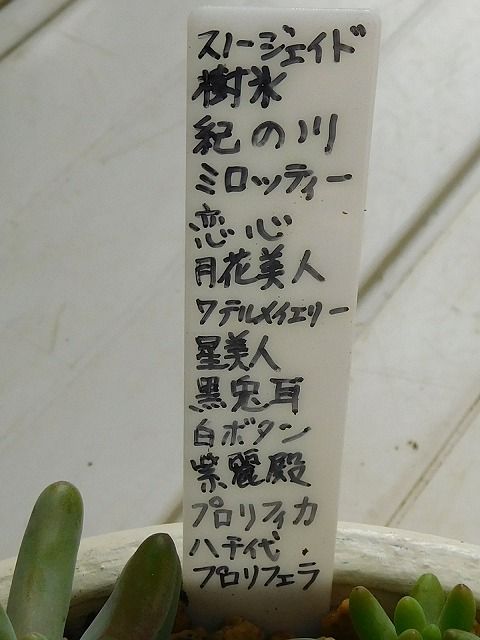 スノージェイド
樹氷
紀の川
ミロッティー
恋心
月花美人
ワテルメイエリー
星美人
黒兎耳
白ボタン
紫麗殿
プロリフィカ
ハチイ代
プロリフェラ